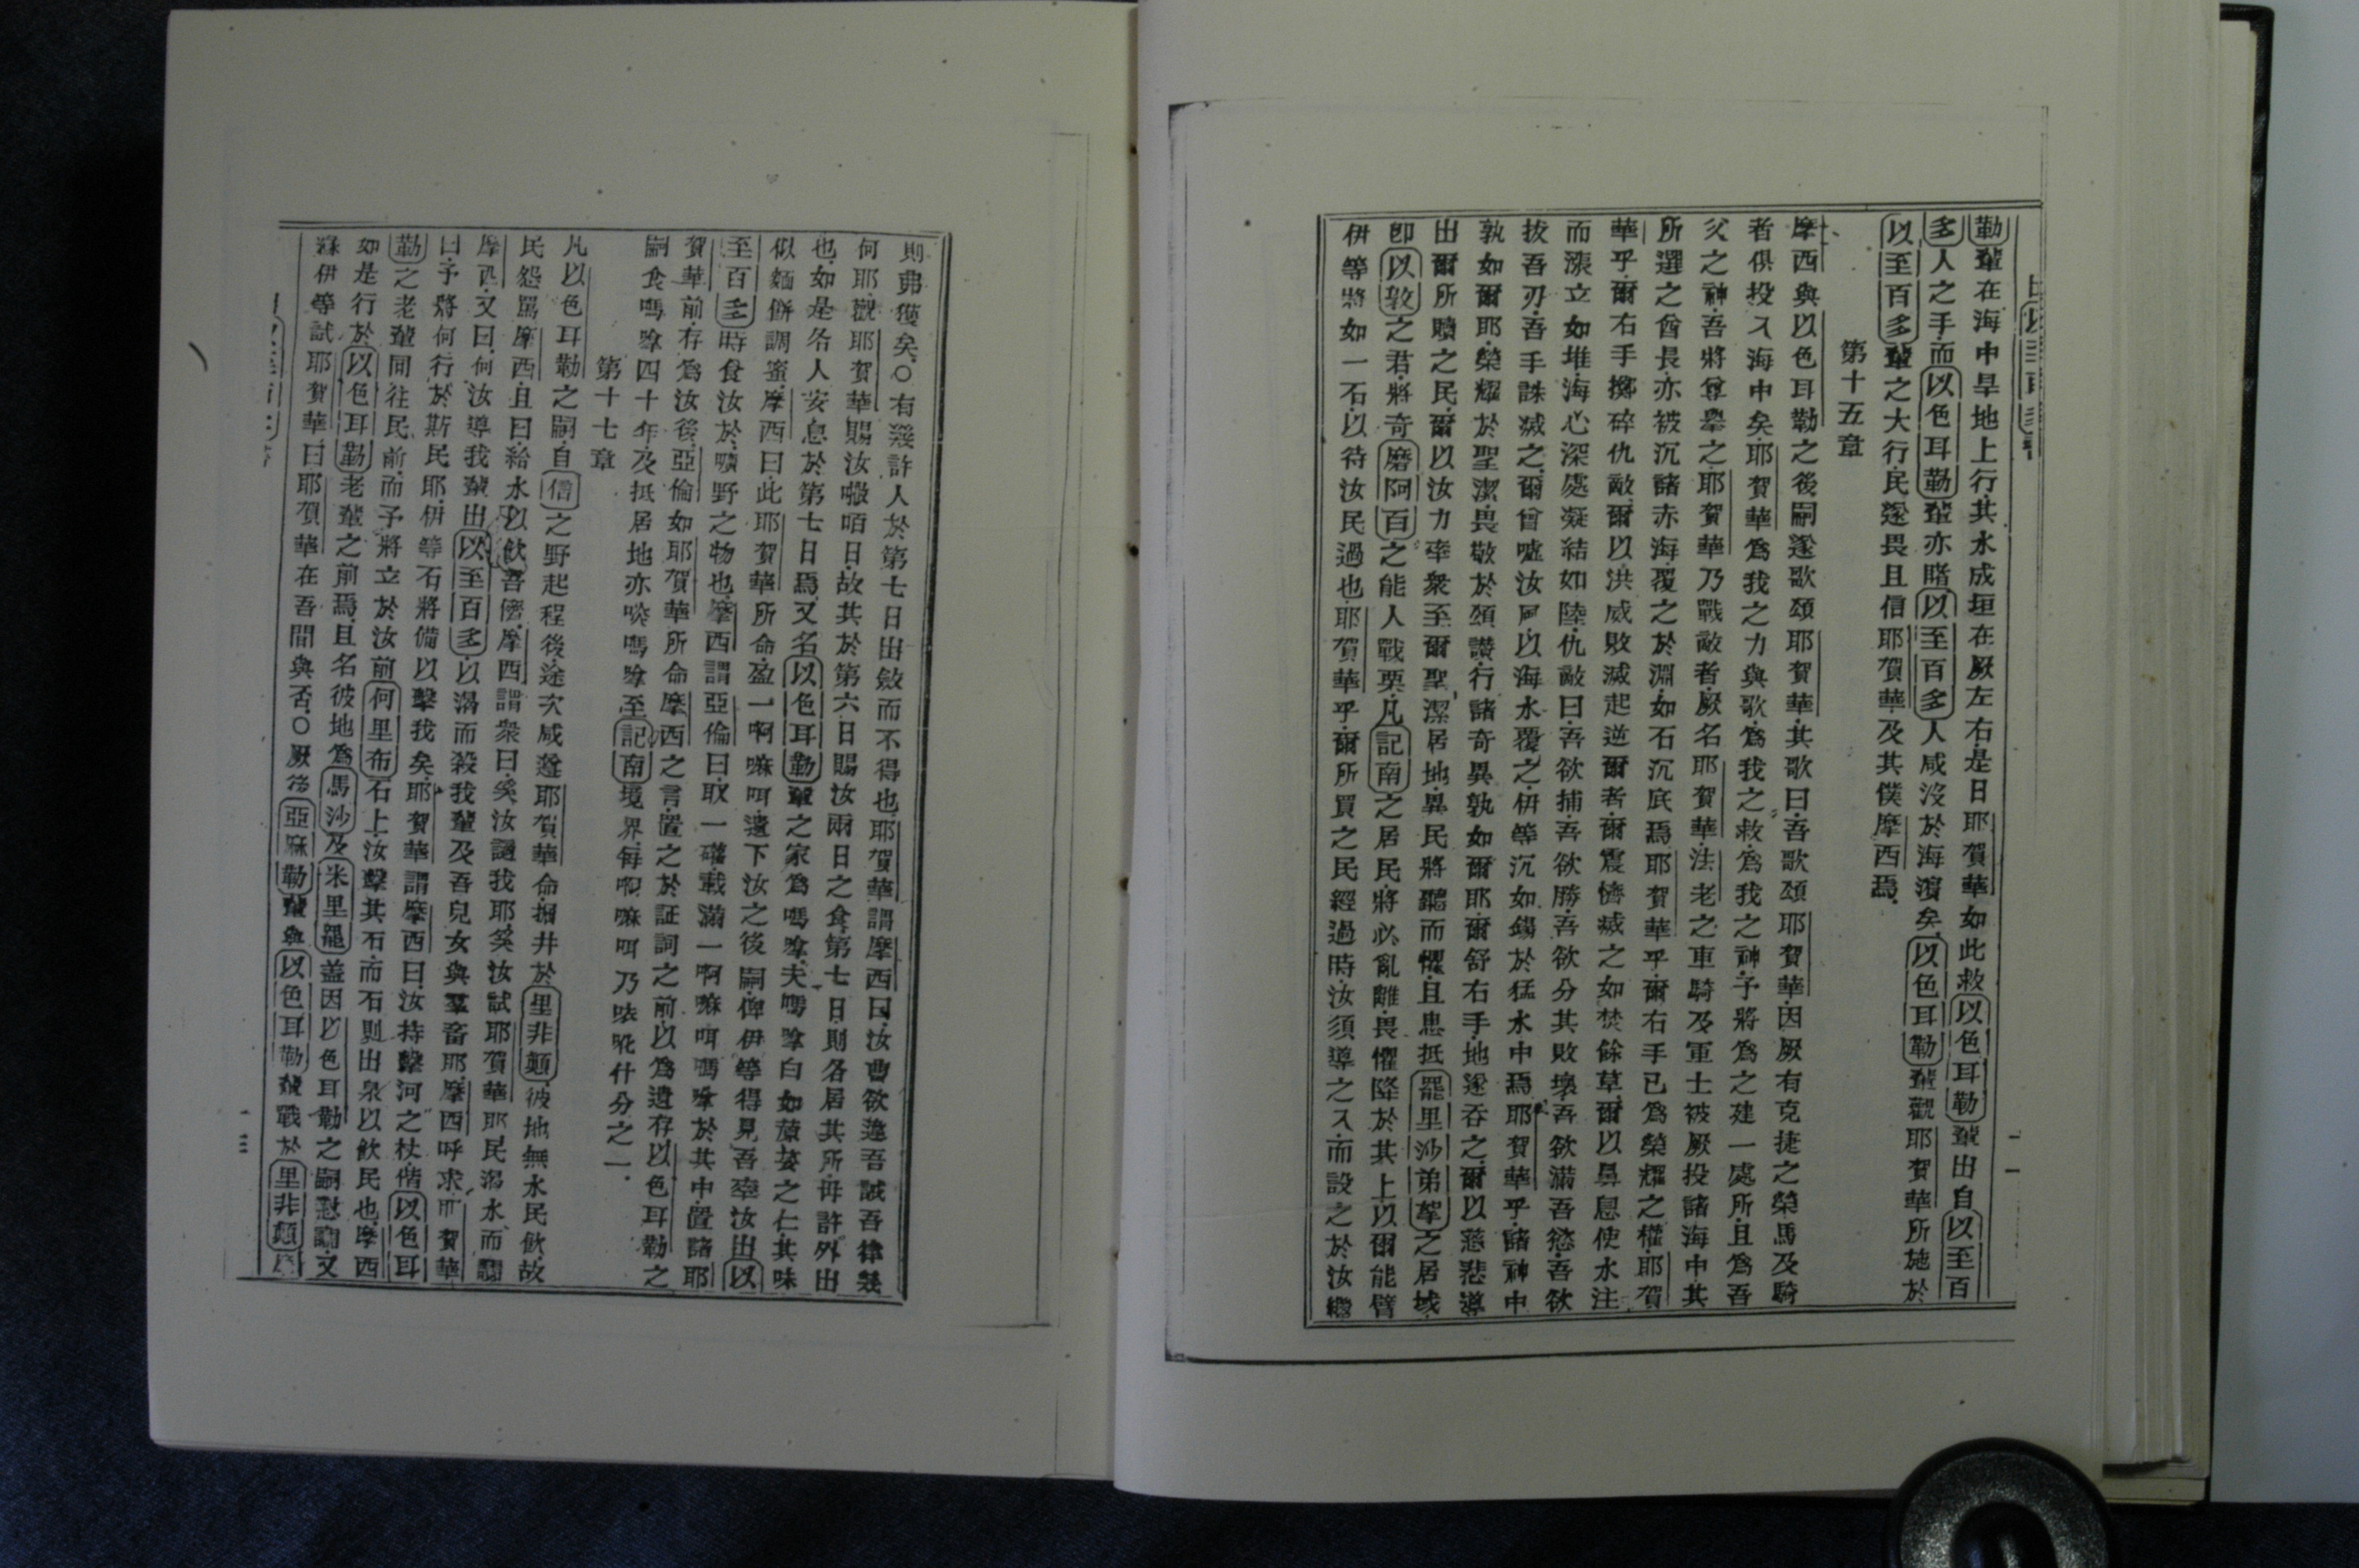 勒輩在海中旱地上行其水成垣在厥左右是日耶賀華如此救以色耳勒輩出自以至百
多人之手而以色耳勒輩亦睹以至百多人咸沒於海濱矣以色耳勒輩觀耶賀華所施於
以至百多輩之大行民遂畏且信耶賀華及其僕摩西焉
第十五章
摩西與以色耳勒之後嗣遂歌頌耶賀華其歌曰吾歌頌耶賀華因厥有克捷之榮馬及騎
者俱投入海中矣耶賀華爲我之力與歌爲我之救爲我之神予將爲之建一處所且爲吾
父之神吾將尊舉之耶賀華乃戰敵者厥名耶賀華法老之車騎及軍士被厥投諸海中其
所選之酋長亦被沉諸赤海覆之於淵如石沉底焉耶賀華乎爾右手已爲榮耀之權耶賀
華乎爾右手擲碎仇敵爾以洪威敗滅起逆爾者爾震憤滅之如焚餘草爾以鼻息使水注
而漲立如堆海心深處凝結如陸仇敵曰吾欲捕吾欲勝吾欲分其敗壞吾欲滿吾慾吾欲
拔吾刃吾手誅滅之爾曾噓汝風以海水覆之伊等沉如錫於猛水中焉耶賀華乎諸神中
孰如爾耶榮耀於聖潔畏敬於頌讚行諸奇異孰如爾耶爾舒右手地遂吞之爾以慈悲導
出爾所贖之民爾以汝力率衆至爾聖潔居地異民將聽而懼且患抵罷里沙弟拏之居域
卽以敦之君將奇磨阿百之能人戰栗凡記南之居民將必亂離畏懼降於其上以爾能臂
伊等將如一石以待汝民過也耶賀華乎爾所買之民經過時汝須導之入而設之於汝繼
則弗獲矣○有幾許人於第七日出斂而不得也耶賀華謂摩西曰汝曹欲違吾誡吾律幾
何耶觀耶賀華賜汝𠹌咟日故其於第六日賜汝兩日之食第七日則各居其所毋許外出
也如是各人安息於第七日焉又名以色耳勒輩之家爲嗎嗱夫嗎嗱白如蔍荽之仁其味
似麵餅調蜜摩西曰此耶賀華所命盈一啊嘛咡遺下汝之後嗣俾伊等得見吾率汝出以
至百多時食汝於曠野之物也摩西謂亞倫曰取一礶載滿一啊嘛咡嗎嗱於其中置諸耶
賀華前存爲汝後亞倫如耶賀華所命摩西之言置之於証詞之前以爲遺存以色耳勒之
嗣食嗎嗱四十年及抵居地亦啖嗎嗱至記南境界每啊嘛咡乃㕵𠮟什分之一
第十七章
凡以色耳勒之嗣自信之野起程後途次咸遵耶賀華命掘井於里非顛彼地無水民飲故
民怨罵摩西且曰給水以飲吾儕摩西謂衆曰奚汝讉我耶奚汝試耶賀華耶民渴水而
摩西又曰何汝導我輩出以至百多以渴而殺我輩及吾兒女與羣畜耶摩西呼求耶賀華
曰予將何行於斯民耶伊等石將備以擊我矣耶賀華謂摩西曰汝持擊河之杖偕以色耳
勒之老輩間往民前而予將立於汝前何里布石上汝擊其石而石則出泉以飲民也摩西
如是行於以色耳勒老輩之前焉且名彼地爲馬沙及米里罷蓋因以色耳勒之嗣懟又
緣伊等試耶賀華曰耶賀華在吾間與否○厥後亞麻勒輩與以色耳勒輩戰於里非顛